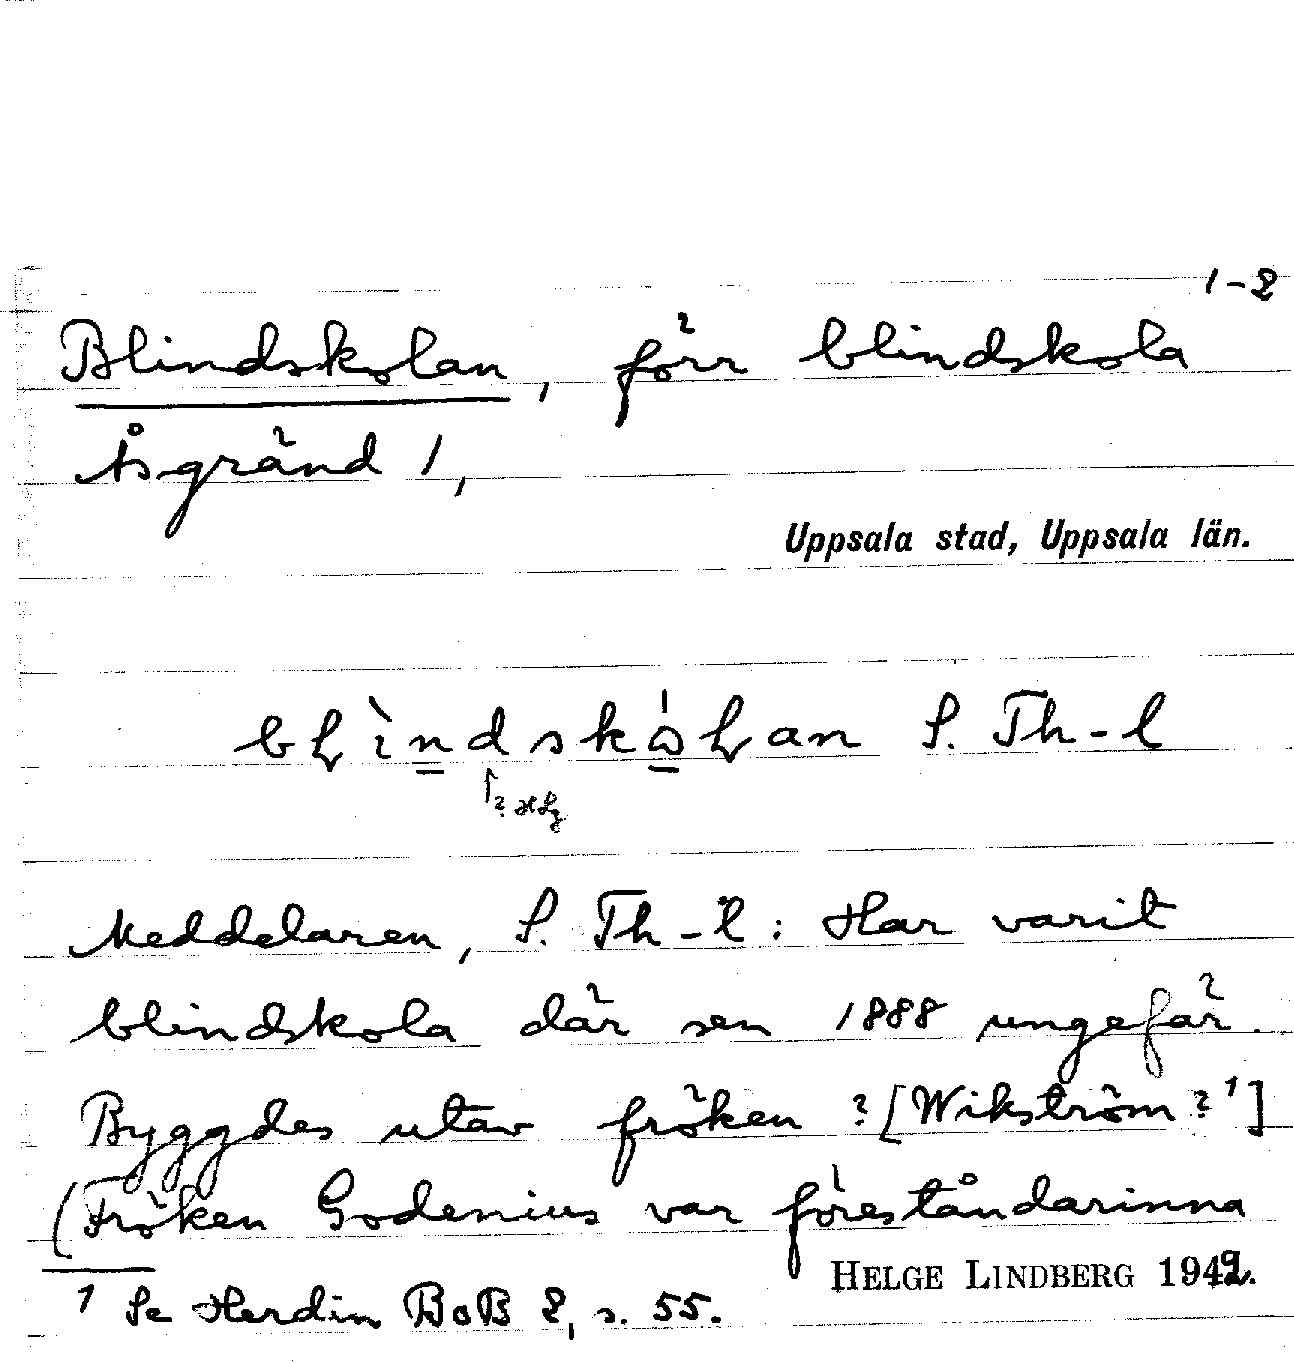 1-2
Blindskolan, förr blindskola
Åsgränd 1,
Uppsala stad, Uppsala län.
S. Th-l
Meddelaren, S. Th-l: Har varit
blindskola där sen 1888 ungefär.
Byggdes utav fröken ? [Wikström ?¹]
(Fröken Godenius var föreståndarinna
HELGE LINDBERG 1942.
¹ Se Herdin BoB 2, s. 55.